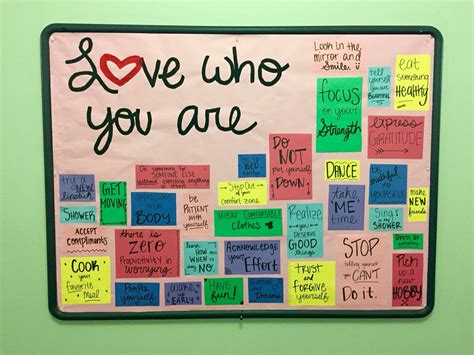 Love who
you are
Look in the
mirror and
Smile
tell
yourself
you are
BEAUTIFUL
eat
something
Healthy
focus
on your
Strength
express
GRATITUDE
DO
NOT
put yourself
DOWN.
DANCE
Do something for
SOMEONE ELSE
without expecting anything
in return
try a
NEW
lipstick
GET
MOVING
appreciate
your
BODY
Step Out of
your
comfort zone
be
PATIENT
with
yourself
take
ME
time
be
truthful to
YOURSELF
make
NEW
friends
SHOWER
wear COMFORTABLE
clothes
Realize
you
DESERVE
GOOD
things
Sing in
the SHOWER
ACCEPT
compliments
there is
ZERO
PRODUCTIVITY IN
WORRYING
learn
HOW and
WHEN to
say
NO.
ACKNOWLEDGE
your
Effort
STOP
telling yourself
you CAN'T
Do it.
Dress up
Pick
up a
new
HOBBY
COOK
your
favorite
Meal
TRUST
and
FORGIVE
yourself
Pamper
yourself
WAKE
up EARLY
HAVE
fun!
Dreams